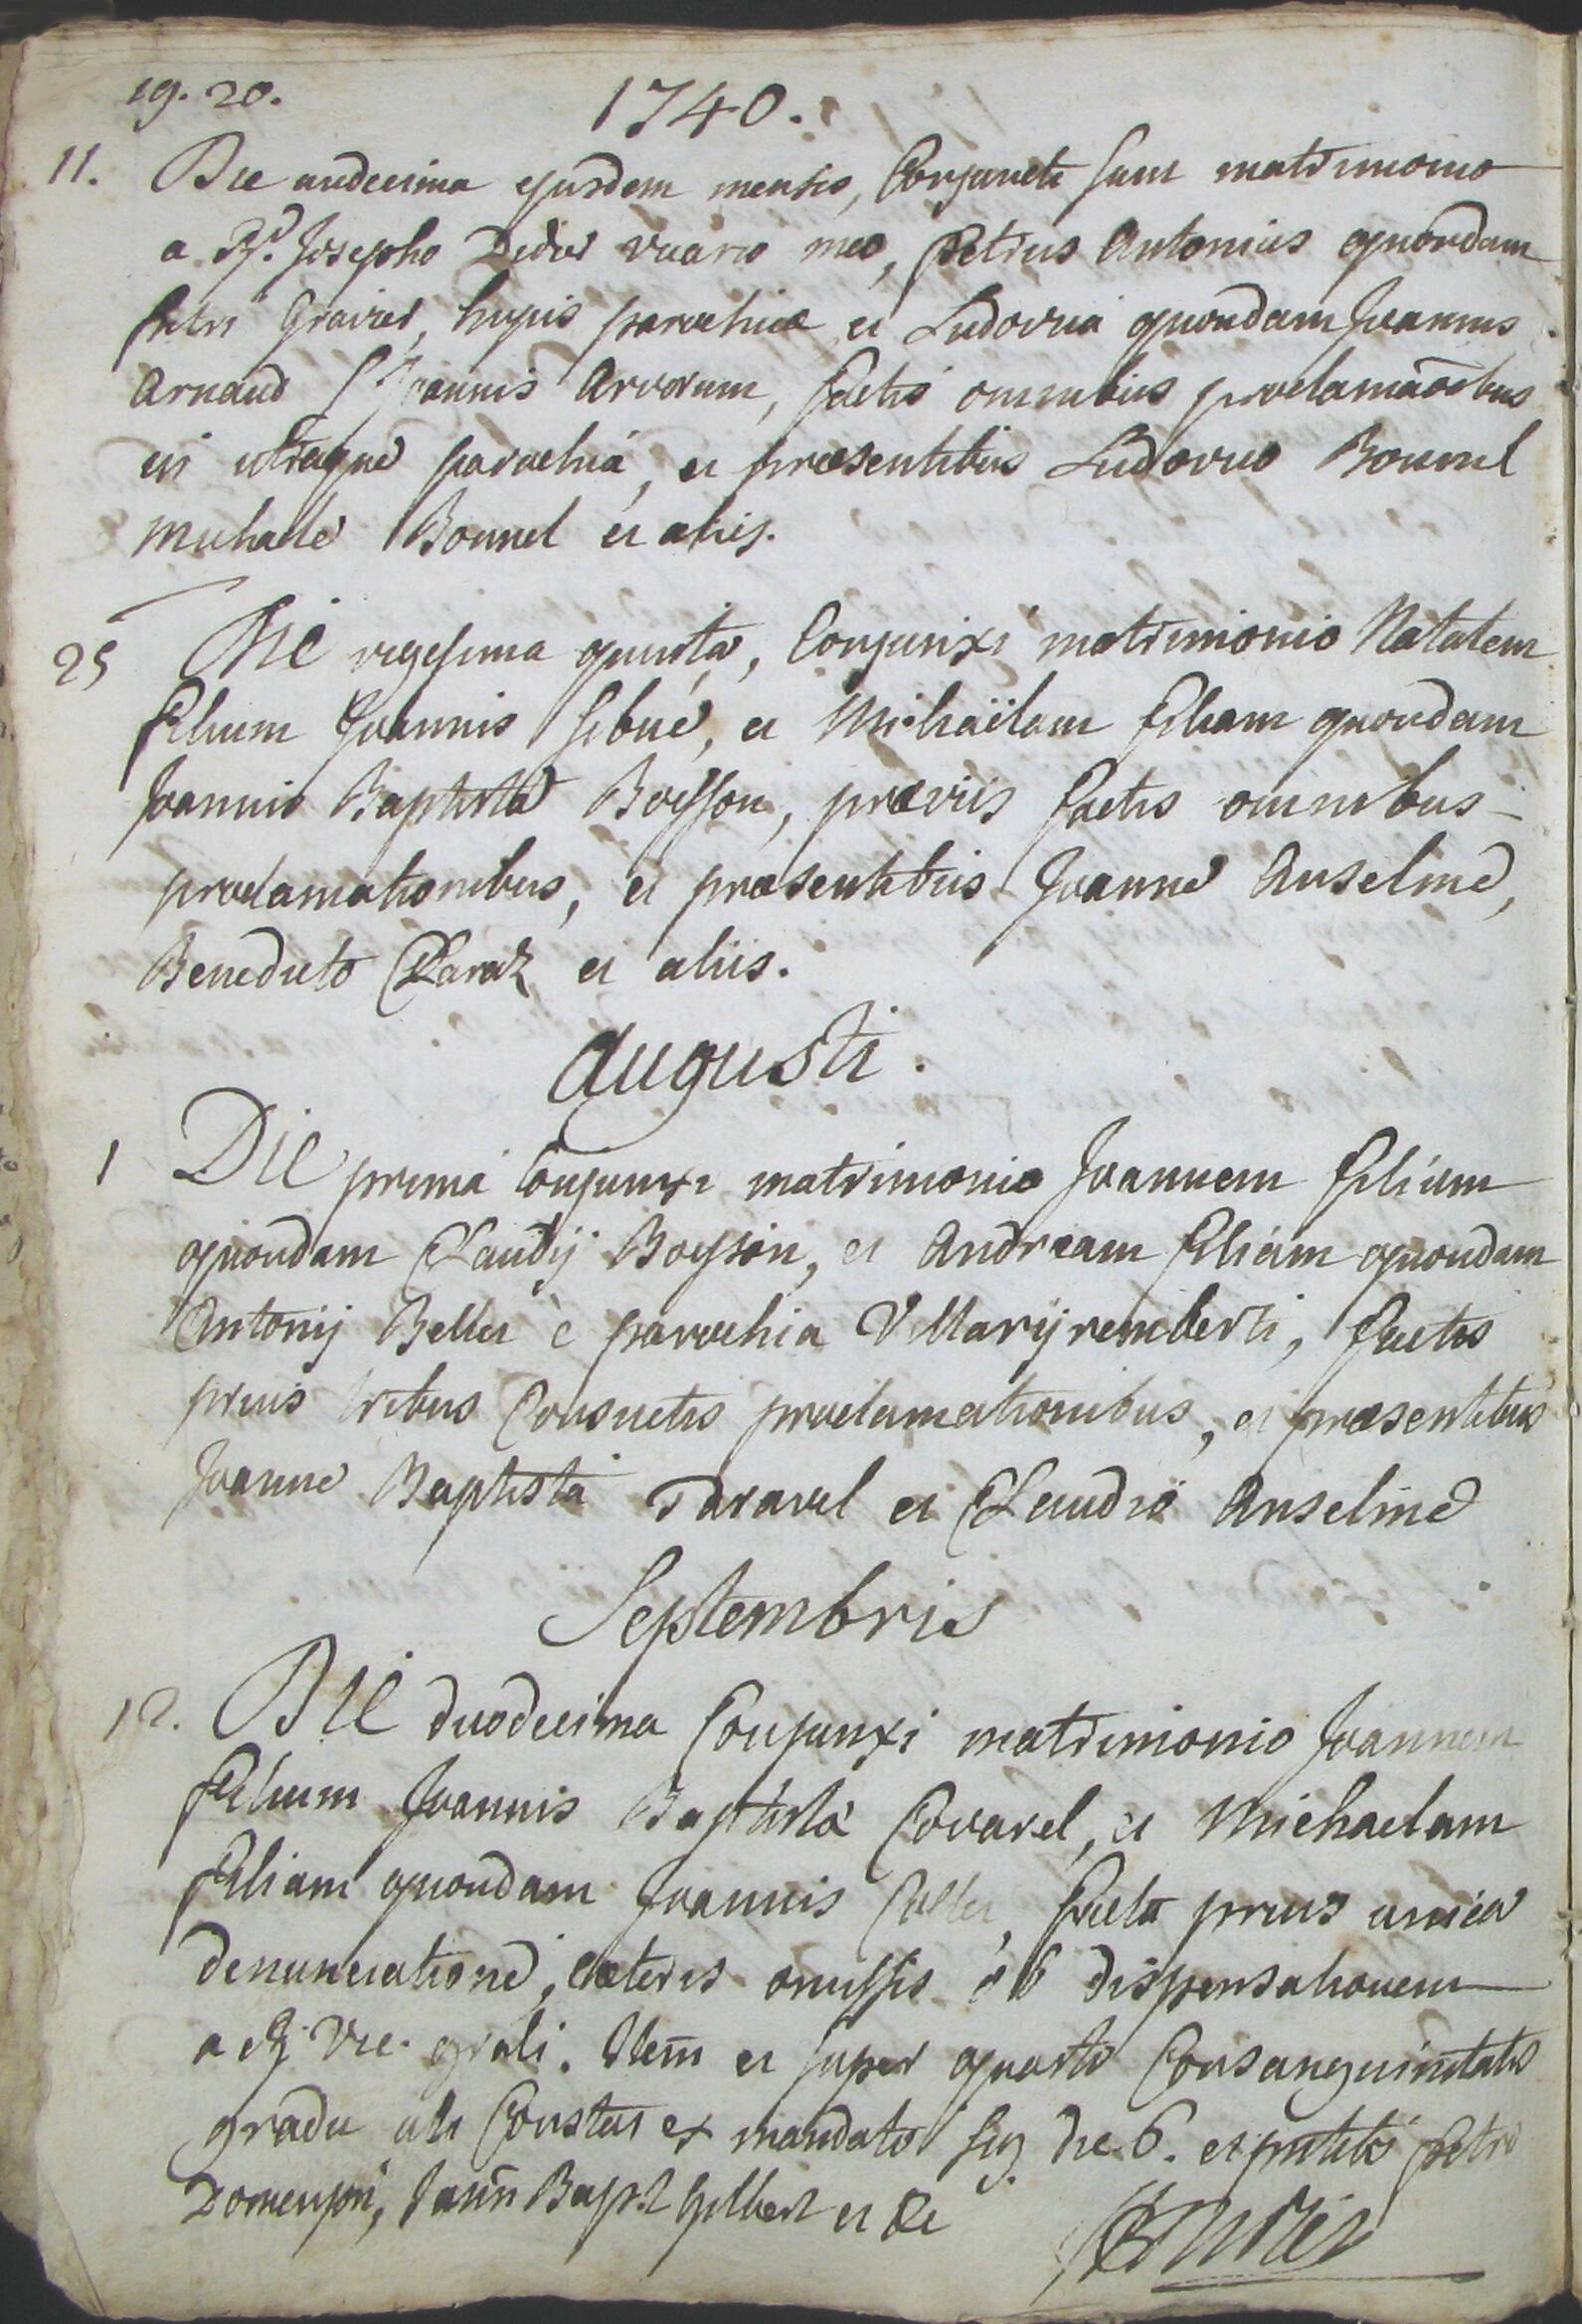 19. 20.
1740.
11. Die undecima ejusdem mensis, Conjuncti sunt matrimonio
a Rd. Josepho Didier vicario meo, Petrus Antonius quondam
Petri Gravier, hujus parochiæ et Ludovica quondam Joannis
Arnaud Sti Joannis Arvorum, factis omnibus proclamaõibus
in utraque parochiá, et præsentibus Ludovico Bonnel
Michaele Bonnel et aliis.
25 Die vigesima quinta, Conjunxi matrimonio Natalem
filium Joannis Sibué, et Michaëlam filiam quondam
Joannis Baptistæ Boysson, præviis factis omnibus
proclamationibus, et præsentibus Joanne Anselme,
Benedicto Claraz et aliis.
Augusti.
1 Die primá Conjunxi matrimonio Joannem filium
quondam Claudij Boyson, et Andream filiam quondam
Antonij Bellet è parochia Villarijremberti, factis
prius tribus Consuetis proclamationibus, et præsentibus
Joanne Baptistá Taravel et Claudio Anselme
Septembris
12. Die duodecima Conjunxi matrimonio Joannem
filium Joannis Baptistæ Covarel, et Michaelam
filiam quondam Joannis, facta prius unica
denunciatione, cæteris omissis ob dispensationem
a Vic. grali. Item et super quarto Consanguinitatis
gradu uti Constat ex mandato sig. die 6. et pntibs Petro
Domenjon, Joañ Bapt. Gilbert et &c